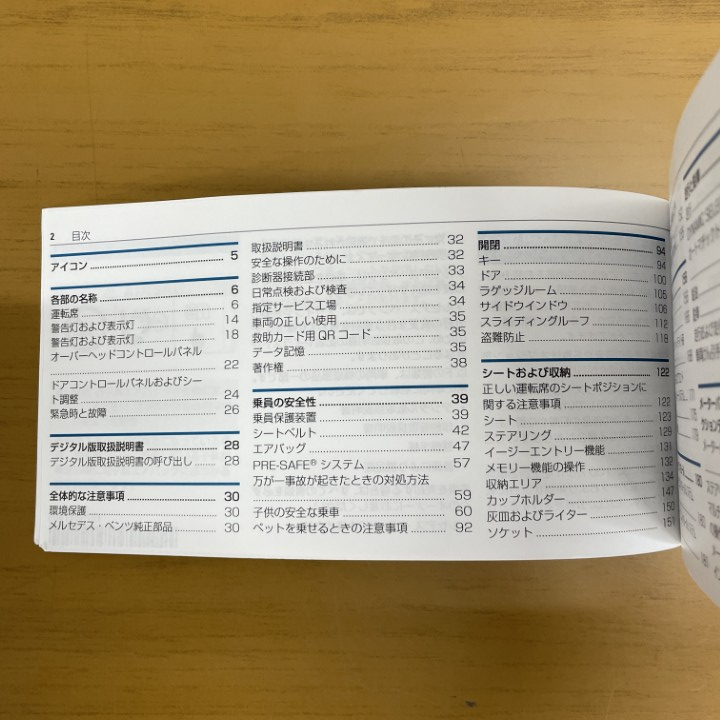 2 目次
アイコン 5
各部の名称 6
運転席 6
警告灯および表示灯 14
警告灯および表示灯 18
オーバーヘッドコントロールパネル
22
ドアコントロールパネルおよびシー
ト調整 24
緊急時と故障 26
デジタル版取扱説明書 28
デジタル版取扱説明書の呼び出し 28
全体的な注意事項 30
環境保護 30
メルセデス・ベンツ純正部品 30
取扱説明書 32
安全な操作のために 32
診断器接続部 33
日常点検および検査 34
指定サービス工場 34
車両の正しい使用 35
救助カード用 QR コード 35
データ記憶 35
著作権 38
乗員の安全性 39
乗員保護装置 39
シートベルト 42
エアバッグ 47
PRE-SAFE® システム 57
万が一事故が起きたときの対処方法
59
子供の安全な乗車 60
ペットを乗せるときの注意事項 92
開閉 94
キー 94
ドア 100
ラゲッジルーム 105
サイドウインドウ 106
スライディングルーフ 112
盗難防止 118
シートおよび収納
正しい運転席のシートポジションに
関する注意事項 122
シート 123
ステアリング 129
イージーエントリー機能 131
メモリー機能の操作 132
収納エリア 134
カップホルダー 147
灰皿およびライター 150
ソケット 151